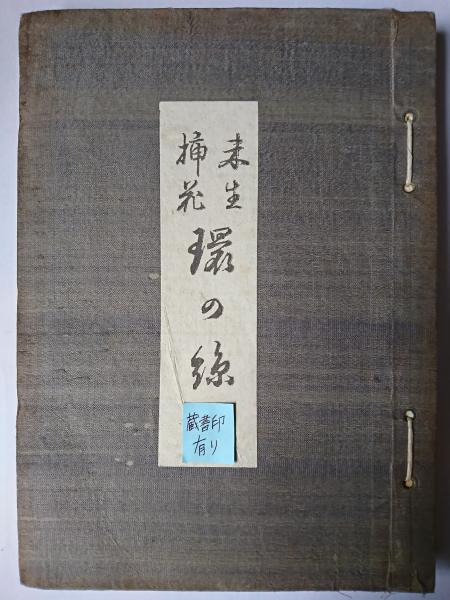 未生
挿花
環の絲
蔵書印
有り